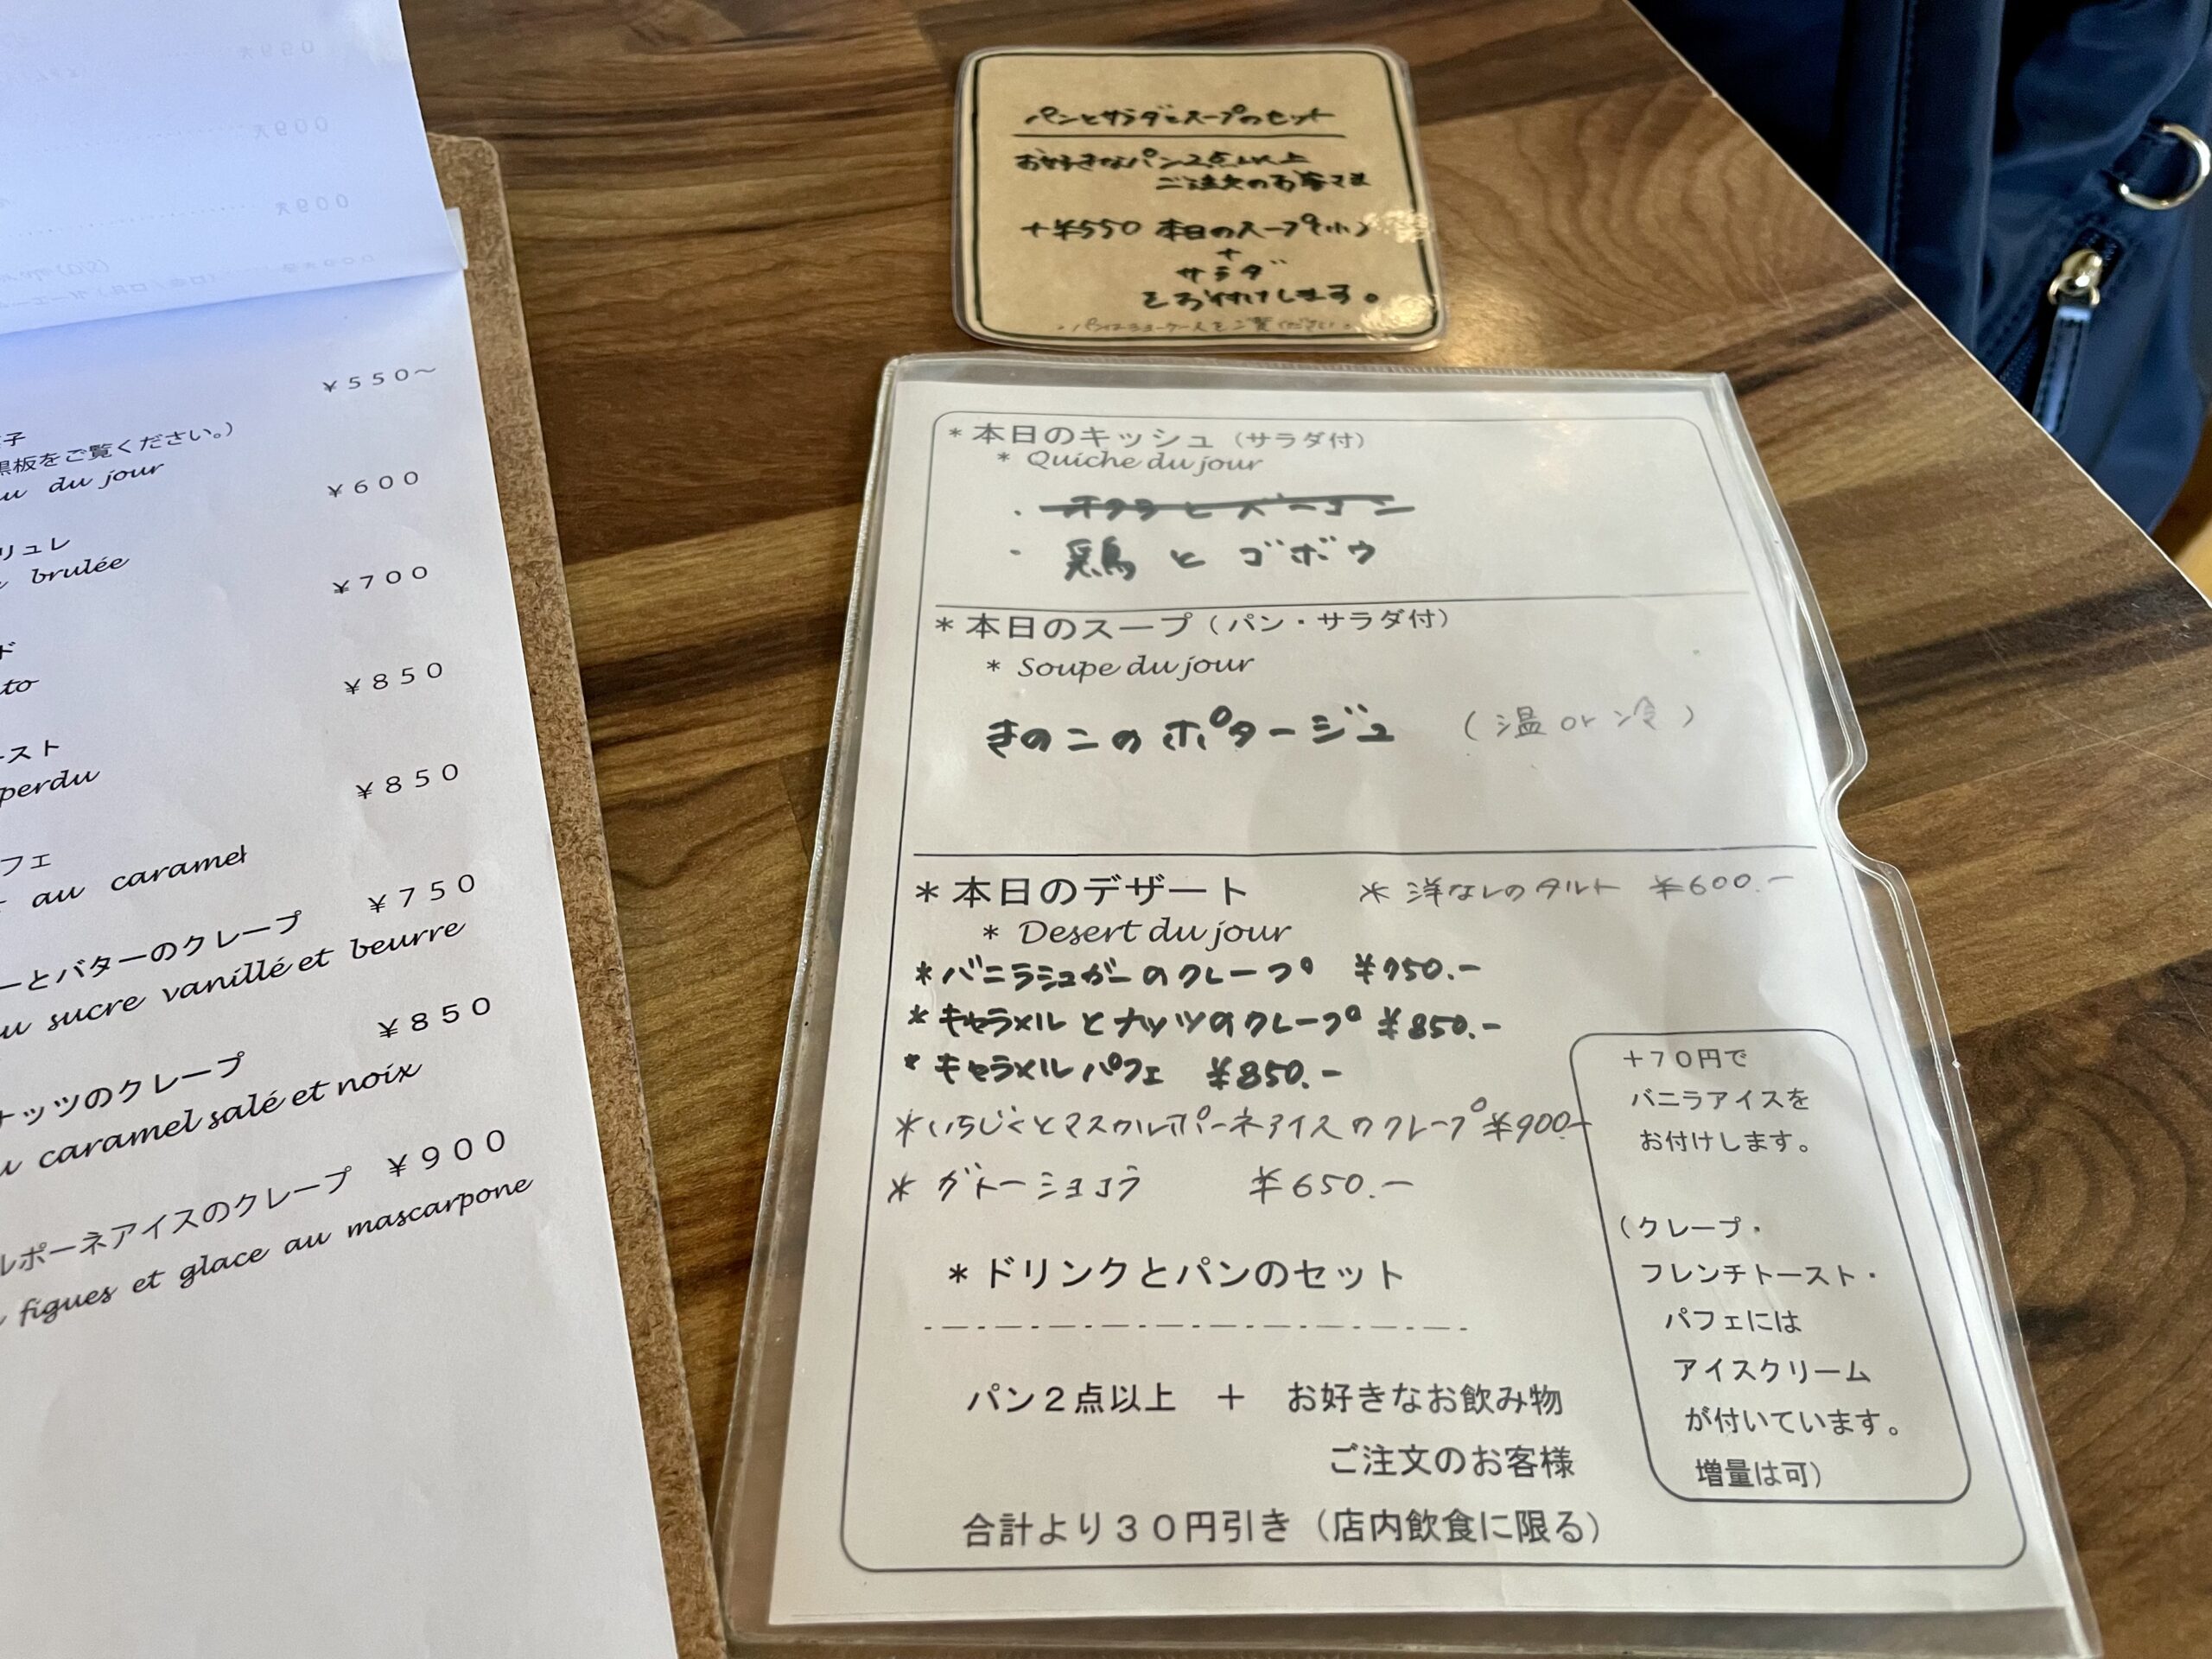 パンとサラダとスープのセット
お好きなパン2点以上
ご注文のお客さま
+¥550 本日のスープ(小)
+
サラダ
をお付けします。
・パンはショーケースをご覧ください。
¥550〜
子
黒板をご覧ください。)
du jour
¥600
リュレ
brulée
¥700
ド
to
¥850
ースト
perdu
¥850
フェ
au caramel
¥750
ーとバターのクレープ
u sucre vanillé et beurre
¥850
ナッツのクレープ
u caramel salé et noix
¥900
ルポーネアイスのクレープ
figues et glace au mascarpone
*本日のキッシュ(サラダ付)
* Quiche du jour
・オクラとベーコン
・鶏とゴボウ
*本日のスープ(パン・サラダ付)
* Soupe du jour
きのこのポタージュ (温or冷)
*本日のデザート *洋なしのタルト ¥600.-
* Desert du jour
*バニラシュガーのクレープ ¥750.-
*キャラメルとナッツのクレープ ¥850.-
*キャラメルパフェ ¥850.-
*いちじくとマスカルポーネアイスのクレープ¥900.-
*ガトーショコラ ¥650.-
*ドリンクとパンのセット
パン2点以上 + お好きなお飲み物
ご注文のお客様
合計より30円引き(店内飲食に限る)
+70円で
バニラアイスを
お付けします。
(クレープ・
フレンチトースト・
パフェには
アイスクリーム
が付いています。
増量は可)